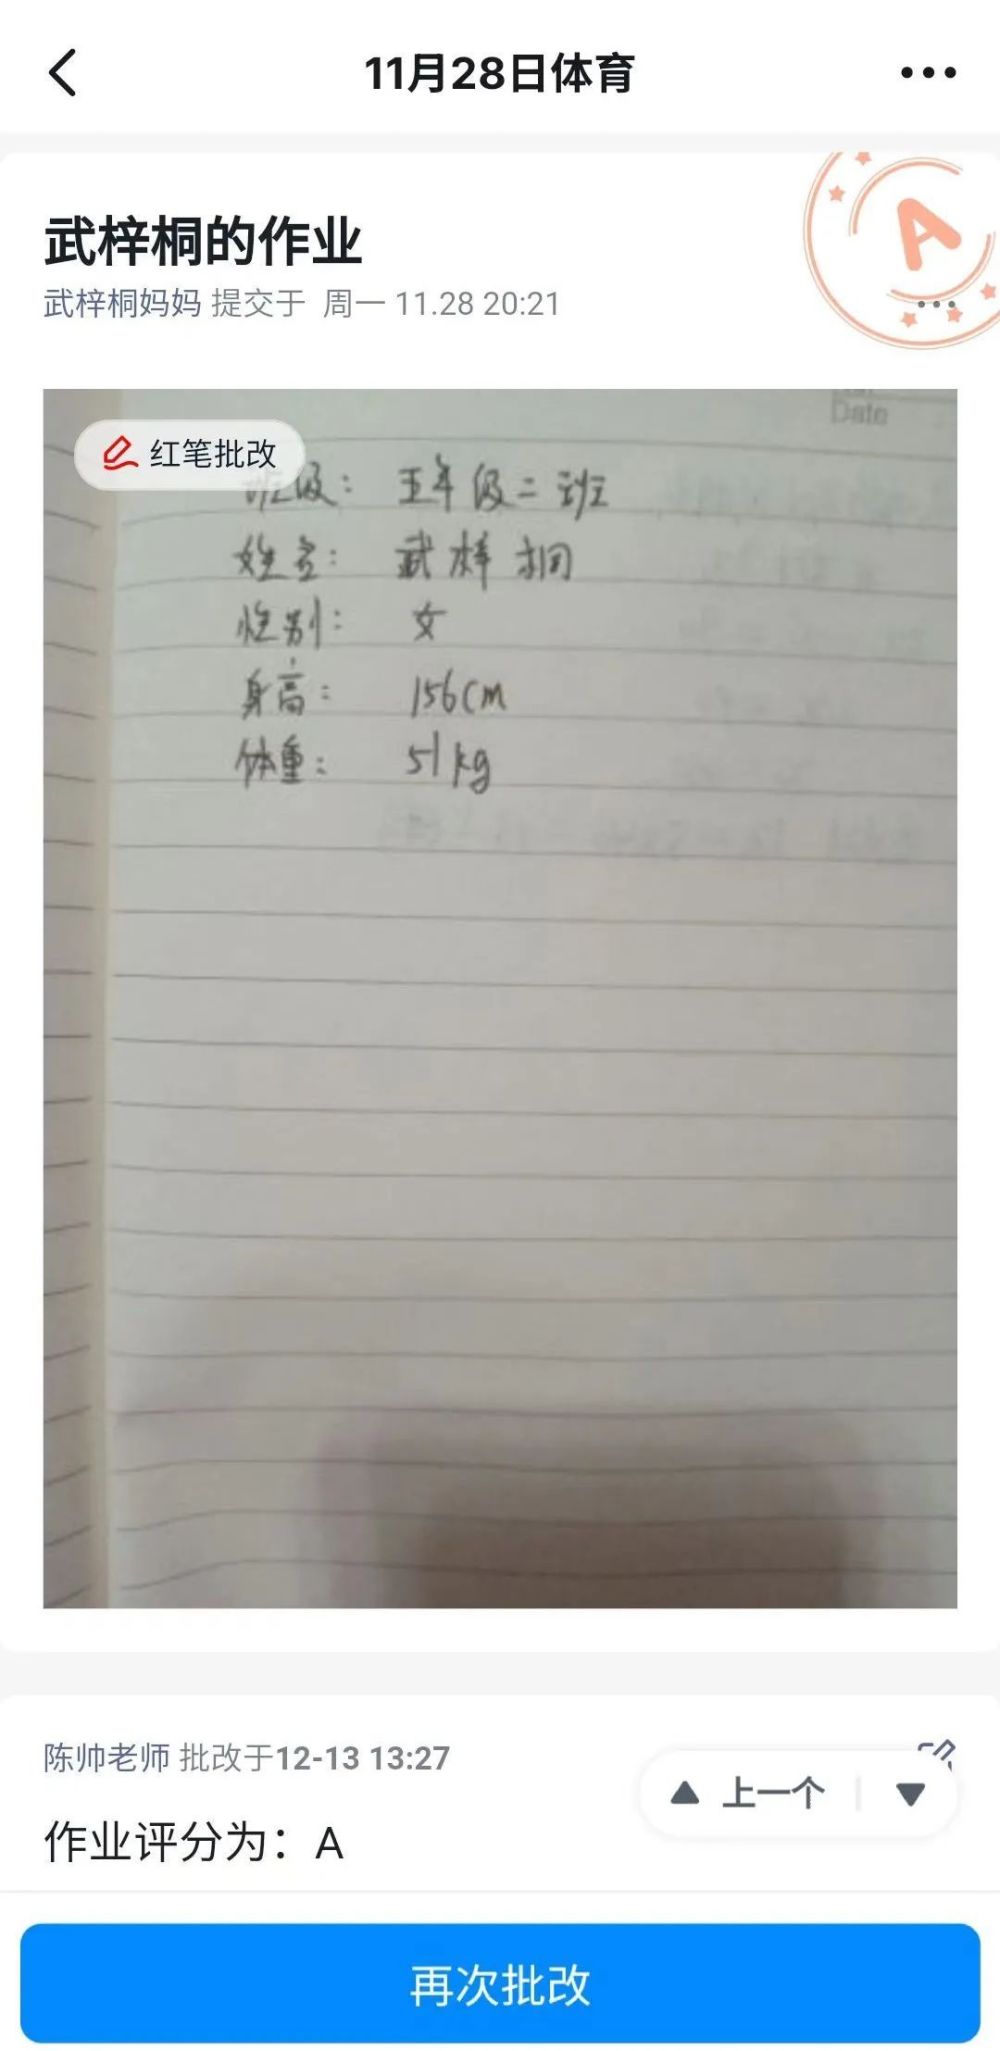 11月28日体育
A
武梓桐的作业
武梓桐妈妈 提交于 周一 11.28 20:21
Date
红笔批改
班级： 五年级二班
姓名： 武梓桐
性别： 女
身高： 156cm
体重： 51kg
陈帅老师 批改于12-13 13:27
上一个
作业评分为：A
再次批改